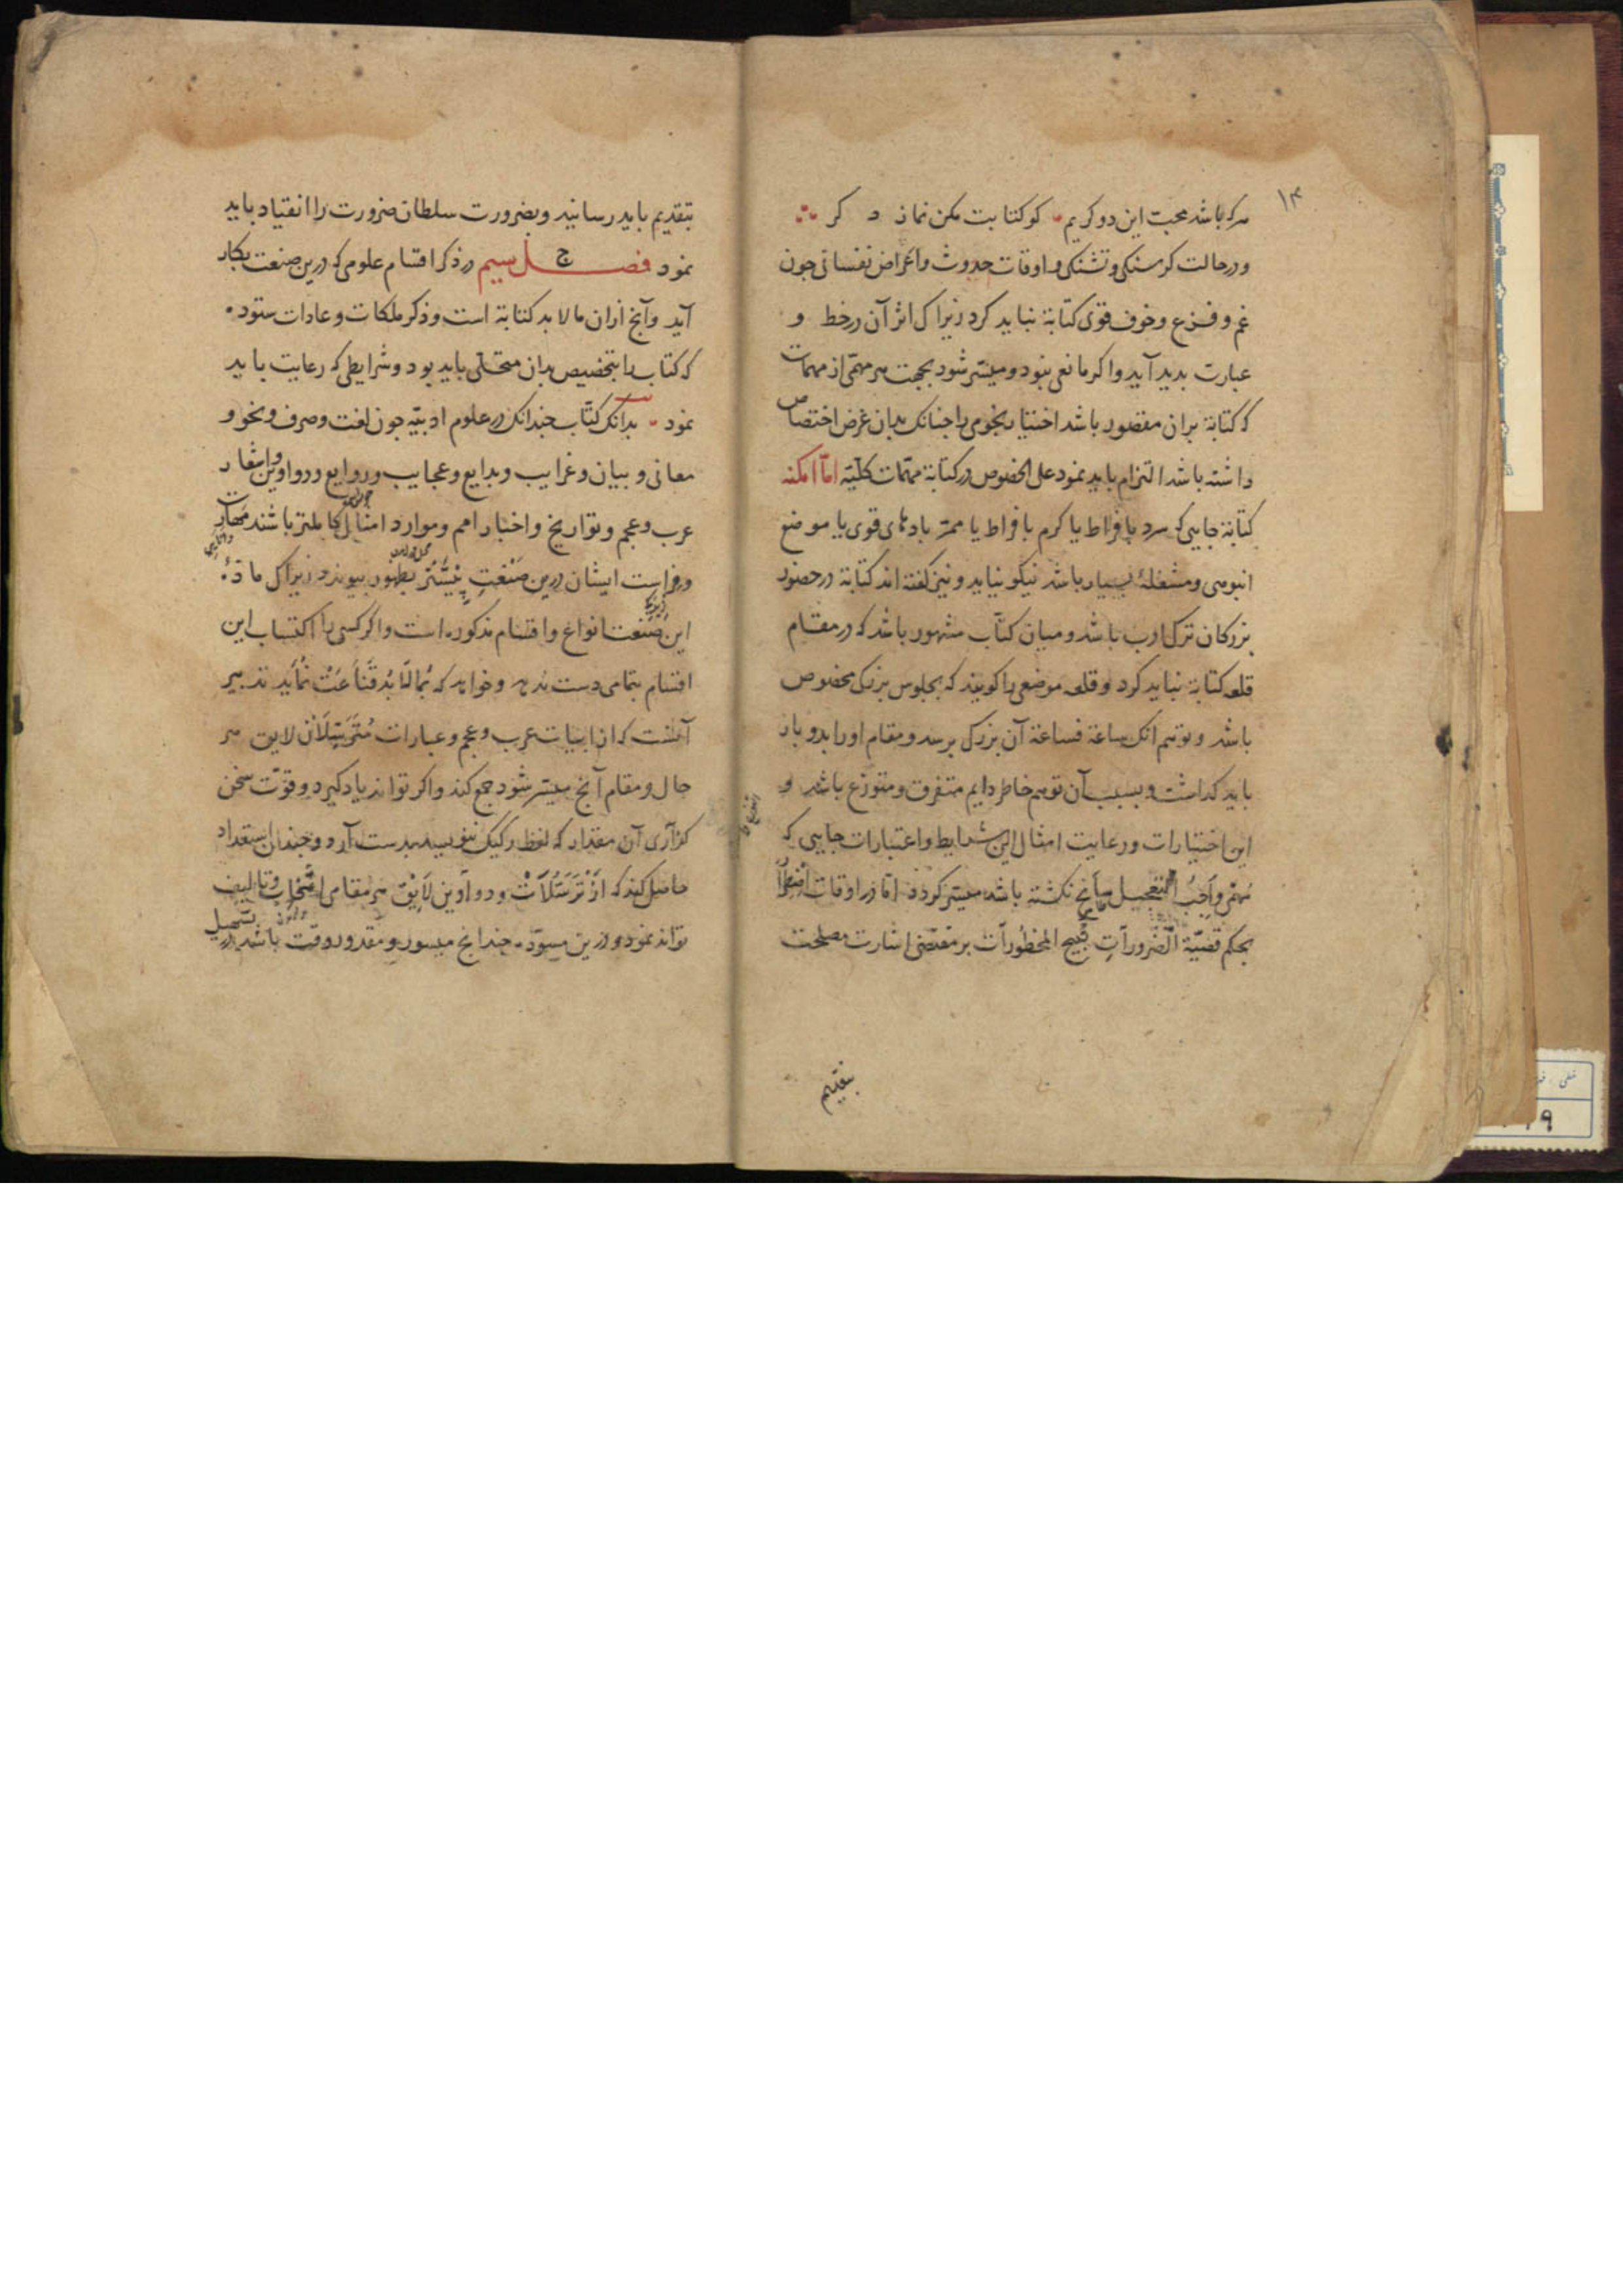 ۱۴
هرکه باشد محبت این دو کریم کو کتابت مکن نماز د کر
ودر حالت کرسنکی وتشنکی واوقات حدوث واعراض نفسانی جون
غم و فزع وخوف قوی کتابة نباید کرد زیراک اثر آن در خط و
عبارت بدید آید واکر مانعی نبود ومیسّر شود بجهت هر مهمّی از مهمات
که کتابة بران مقصور باشد اختیار نجومی را جنانک بدان غرض اختصاص
داشته باشد التزام باید نمود علی الخصوص در کتابة مهمّات کلّیّه امّا امکنه
کتابة جایی که سرد بافراط یا کرم بافراط یا ممرّ بادهای قوی یا موضع
انبوهی ومشغلهٔ بسیار باشد نیکو نیاید ونیز کفته اند کتابة در حضور
بزرکان ترک ادب باشد ومیان کتّاب مشهور باشد که در مقام
قلعه کتابة نباید کرد وقلعه موضعی را کویند که بجلوس بزرکی مخصوص
باشد وتوهم آنک ساعة فساعة آن بزرک برسد ومقام اورا بدو باز
باید کذاشت وبسبب آن توهم خاطر دایم متفرق ومتوزع باشد و
این اختیارات ورعایت امثال این شرایط واعتبارات جایی که
مهمّ واجب التعجیل سانح نکشته باشد میسر کردد امّا در اوقات اضطرار
بحکم قضیّة الضّرورات تبیح المحظورات بر مقتضی اشارت مصلحت
بتقدیم
بتقدیم باید رسانید وبضرورت سلطان ضرورت را انقیاد باید
نمود فصل سیم در ذکر اقسام علومی که درین صنعت بکار
آید وآنج ازان مالابد کتابة است وذکر ملکات وعادات ستوده
که کتاب را بتخصیص بدان متحلّی باید بود وشرایطی که رعایت باید
نمود بدانک کتّاب جندانک در علوم ادبیّه جون لغت وصرف ونحو و
معانی وبیان وغرایب وبدایع وعجایب وروایع ودواوین واشعار
عرب وعجم وتواریخ واخبار امم وموارد امثال کاملتر باشند مهارت
وفراست ایشان درین صنعت بیشتر بظهور بیوندد زیراک مادّهٔ
این صنعت انواع واقسام مذکوره است واکر کسی را اکتساب این
اقسام بتمامی دست ندهد وخواهد که بمالابد قناعت نماید تدبیر
آنست که از ابیات عرب وعجم وعبارات مترسّلان لایق هر
حال ومقام آنج میسّر شود جمع کند واکر تواند یاد کیرد وقوّت سخن
کزاری آن مقدار که لفظ رکیک ننویسد بدست آرد وجندان استعداد
حاصل کند که از ترسّلات ودواوین لایق هر مقامی انتخاب وتالیف
تواند نمود ودرین مسوّده جندانج میسور ومقدور وقت باشد در تسهیل